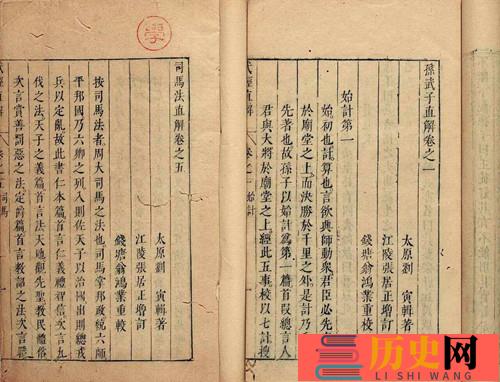 孫武子直解卷之一
太原劉 寅輯著
江陵張居正增訂
錢塘翁鴻業重校
始計第一
始初也計算也言欲興師動衆君臣必先
於廟堂之上而決勝於千里之外是計乃
先著也故孫子以始計為第一篇首叚總言人
君與大將於廟堂之上經此五事校以七計搜
武經直解 卷之一 始計
學
司馬法直解卷之五
太原劉 寅輯著
江陵張居正增訂
錢塘翁鴻業重校
按司馬法者周大司馬之法也司馬掌邦政統六師
平邦國乃六卿之列入則佐天子以治國出則總戎
兵以定亂故此書仁本篇首言仁義禮智信次言九
伐之法天子之義篇首言法天地觀先聖教民體俗
次言賞善罰惡之法定爵篇首言教詔之法次言
武經直解 卷之五 司馬
历史网
LI SHI WANG